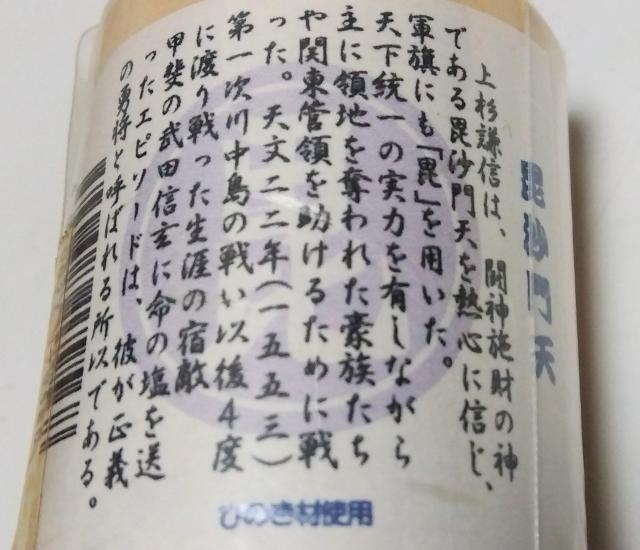 毘沙門天
上杉謙信は、闘神施財の神
である毘沙門天を熱心に信じ、
軍旗にも「毘」を用いた。
天下統一の実力を有しながら
主に領地を奪われた豪族たち
や関東管領を助けるために戦
った。天文二二年(一五五三)
第一次川中島の戦い以後4度
に渡り戦った生涯の宿敵
甲斐の武田信玄に命の塩を送
ったエピソードは、彼が正義
の勇将と呼ばれる所以である。
ひのき材使用